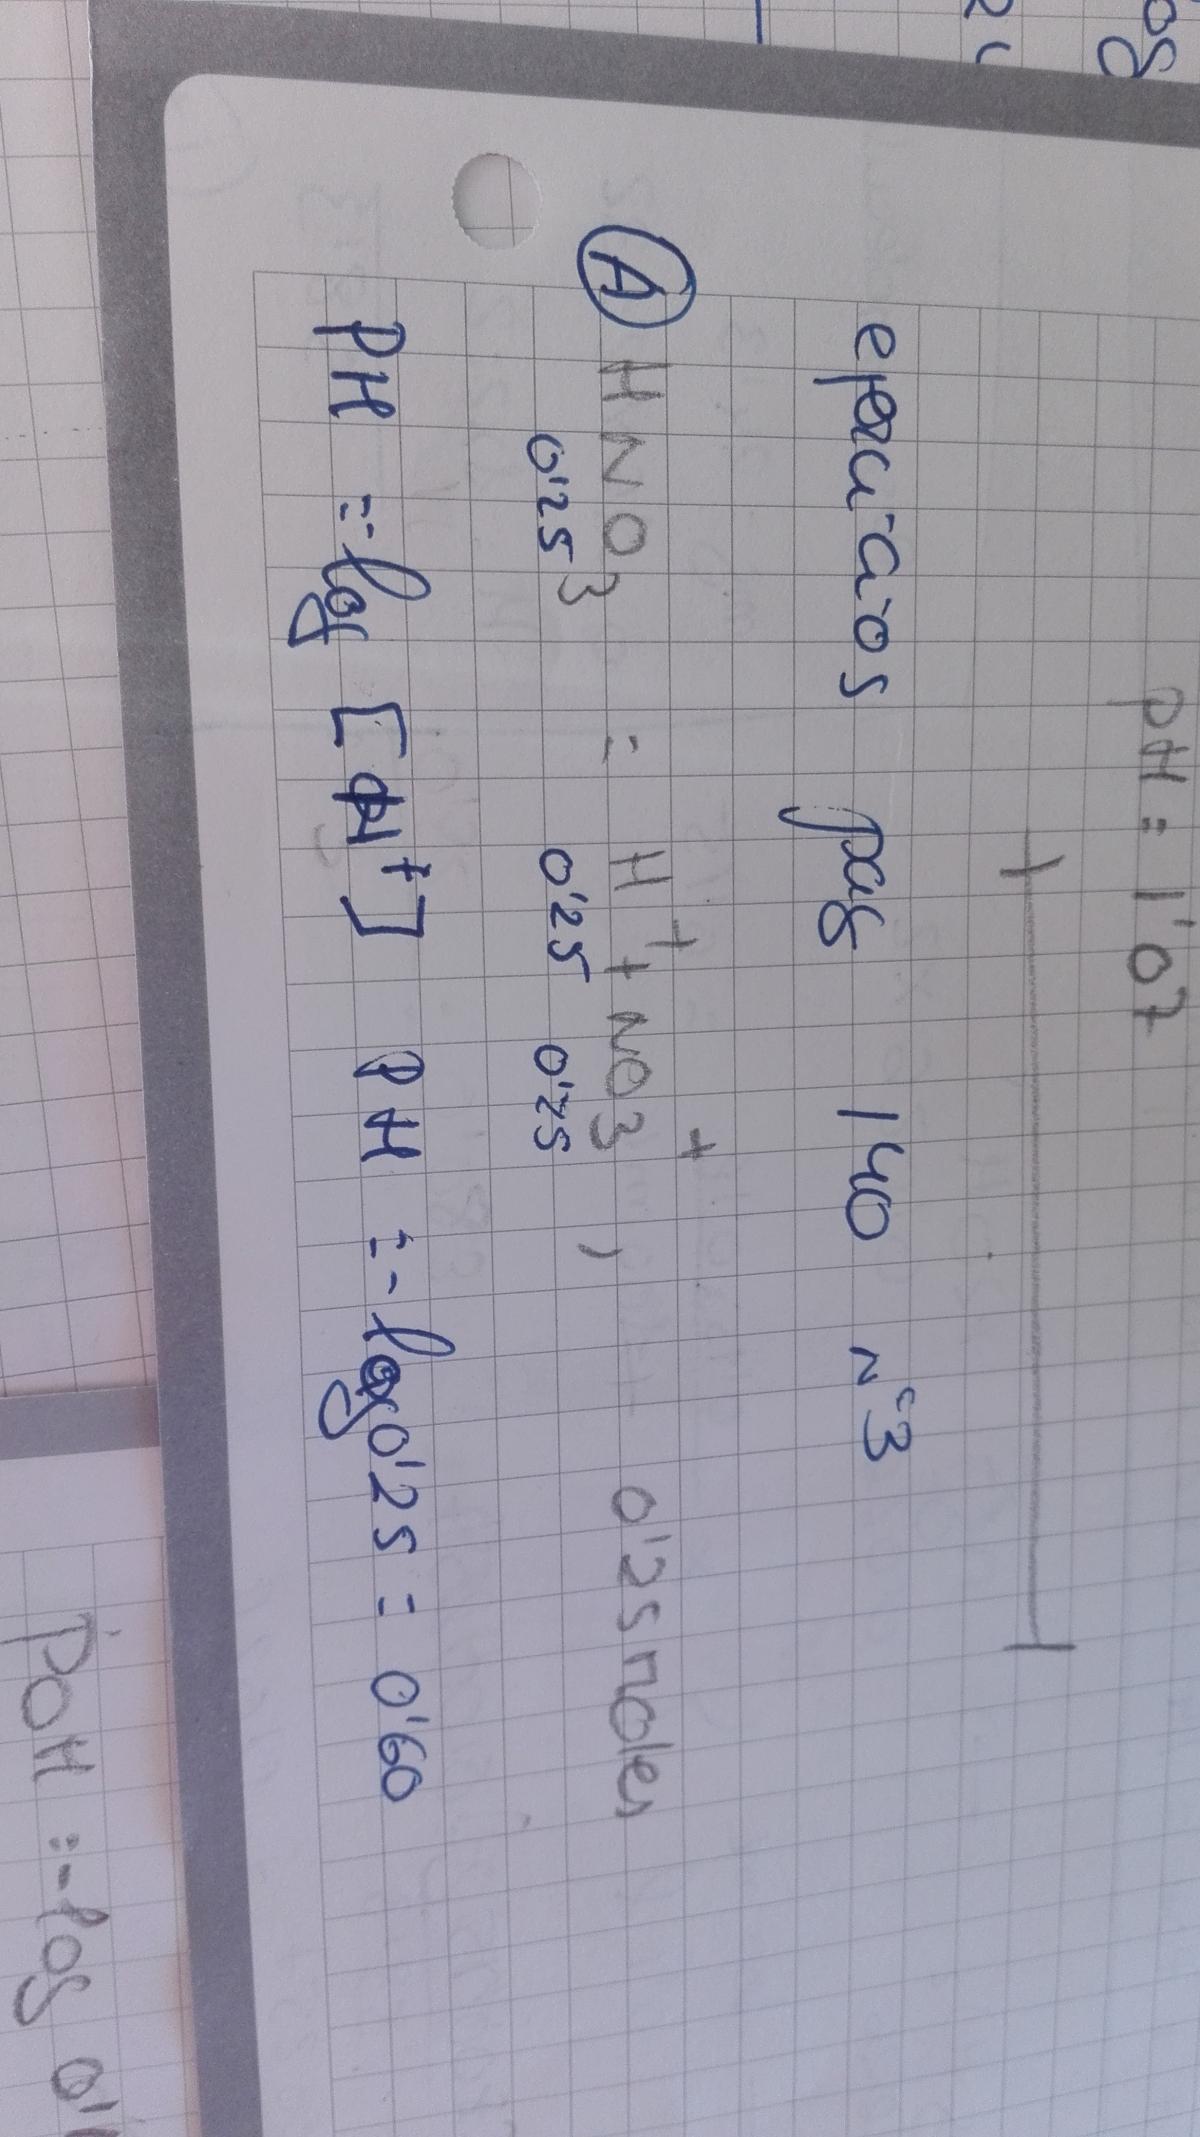 pH = 1'07
ejercicios pag 140 nº3
A HNO3 = H+ + NO3+ , 0'25 moles
0'25 0'25 0'25
PH = -log [H+] PH = -log 0'25 = 0'60
POH = -log 0'